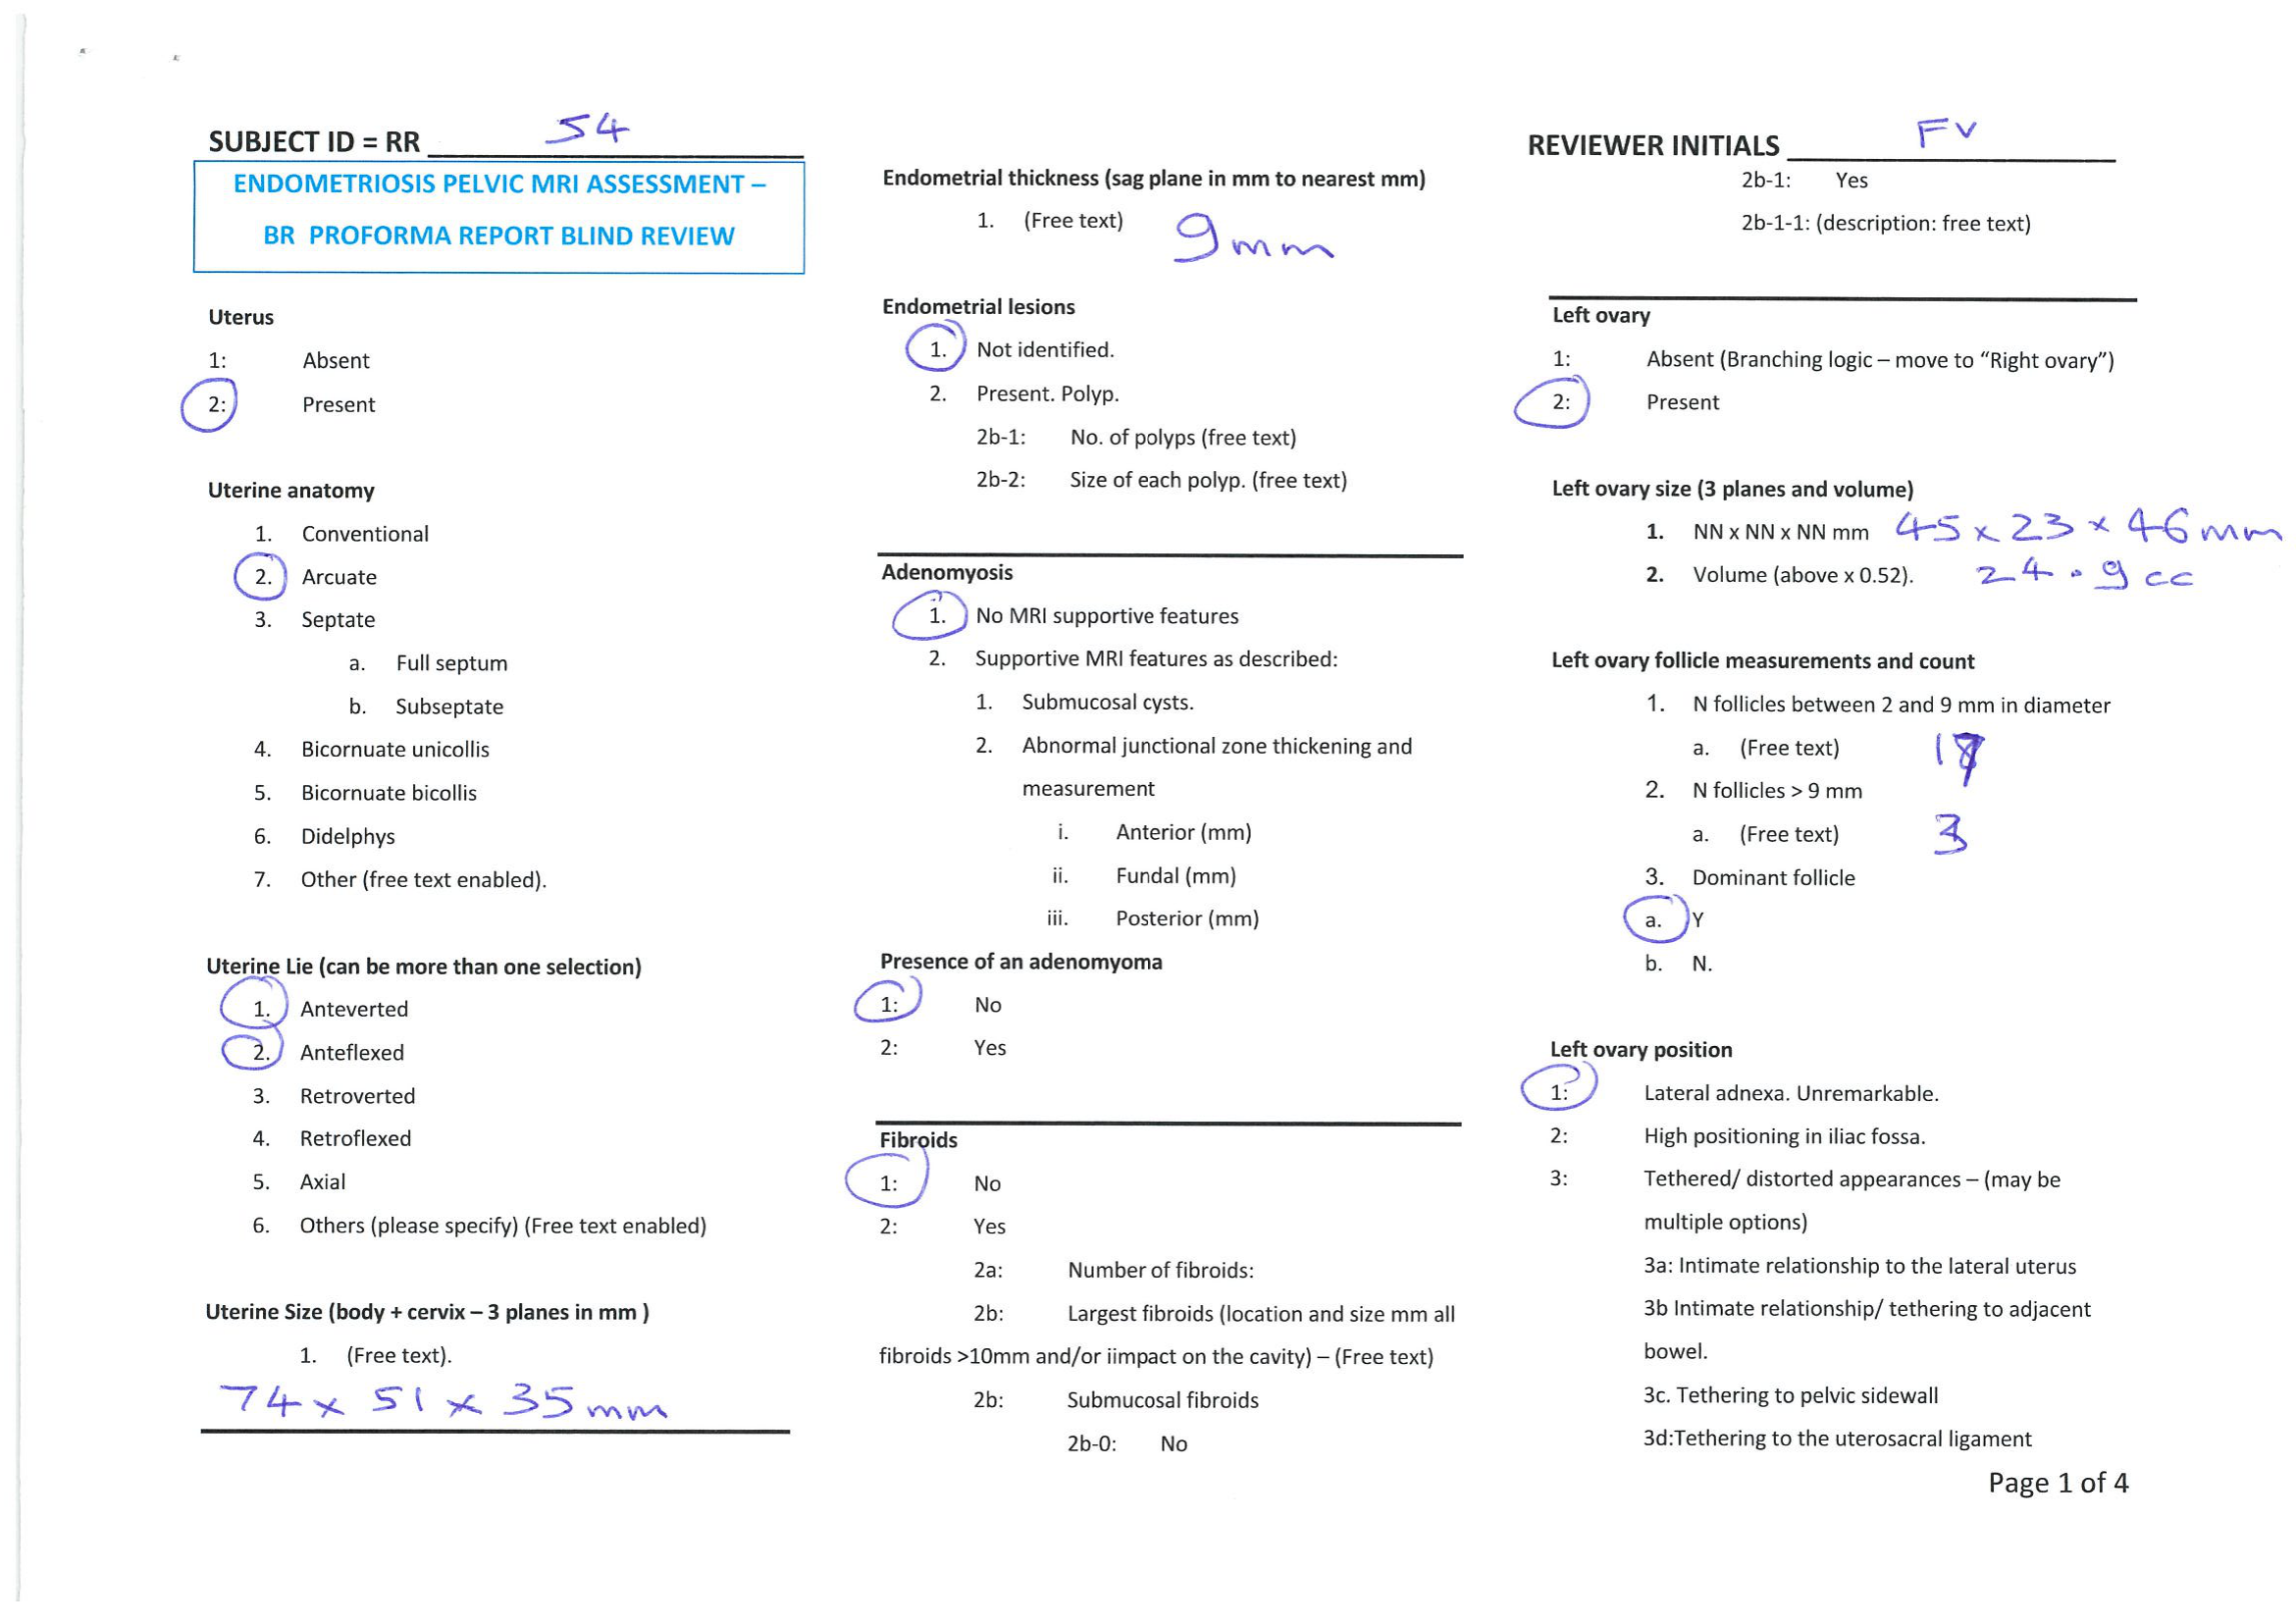 SUBJECT ID = RR 54
ENDOMETRIOSIS PELVIC MRI ASSESSMENT –
BR PROFORMA REPORT BLIND REVIEW
Uterus
1: Absent
2: Present
Uterine anatomy
1. Conventional
2. Arcuate
3. Septate
a. Full septum
b. Subseptate
4. Bicornuate unicollis
5. Bicornuate bicollis
6. Didelphys
7. Other (free text enabled).
Uterine Lie (can be more than one selection)
1. Anteverted
2. Anteflexed
3. Retroverted
4. Retroflexed
5. Axial
6. Others (please specify) (Free text enabled)
Uterine Size (body + cervix – 3 planes in mm )
1. (Free text).
74 x 51 x 35 mm
Endometrial thickness (sag plane in mm to nearest mm)
1. (Free text) 9mm
Endometrial lesions
1. Not identified.
2. Present. Polyp.
2b-1: No. of polyps (free text)
2b-2: Size of each polyp. (free text)
Adenomyosis
1. No MRI supportive features
2. Supportive MRI features as described:
1. Submucosal cysts.
2. Abnormal junctional zone thickening and
measurement
i. Anterior (mm)
ii. Fundal (mm)
iii. Posterior (mm)
Presence of an adenomyoma
1: No
2: Yes
Fibroids
1: No
2: Yes
2a: Number of fibroids:
2b: Largest fibroids (location and size mm all
fibroids >10mm and/or iimpact on the cavity) – (Free text)
2b: Submucosal fibroids
2b-0: No
REVIEWER INITIALS FV
2b-1: Yes
2b-1-1: (description: free text)
Left ovary
1: Absent (Branching logic – move to “Right ovary”)
2: Present
Left ovary size (3 planes and volume)
1. NN x NN x NN mm 45 x 23 x 46 mm
2. Volume (above x 0.52). 24.9 cc
Left ovary follicle measurements and count
1. N follicles between 2 and 9 mm in diameter
a. (Free text)
2. N follicles > 9 mm
a. (Free text) 3
3. Dominant follicle
a. Y
b. N.
Left ovary position
1: Lateral adnexa. Unremarkable.
2: High positioning in iliac fossa.
3: Tethered/ distorted appearances – (may be
multiple options)
3a: Intimate relationship to the lateral uterus
3b Intimate relationship/ tethering to adjacent
bowel.
3c. Tethering to pelvic sidewall
3d:Tethering to the uterosacral ligament
Page 1 of 4